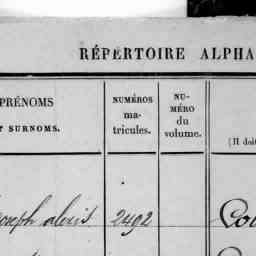 RÉPERTOIRE ALPHA
PRÉNOMS
T SURNOMS.
NUMÉROS
ma-
tricules.
NU-
MÉRO
du
volume.
(Il doit
Joseph alexis 2492